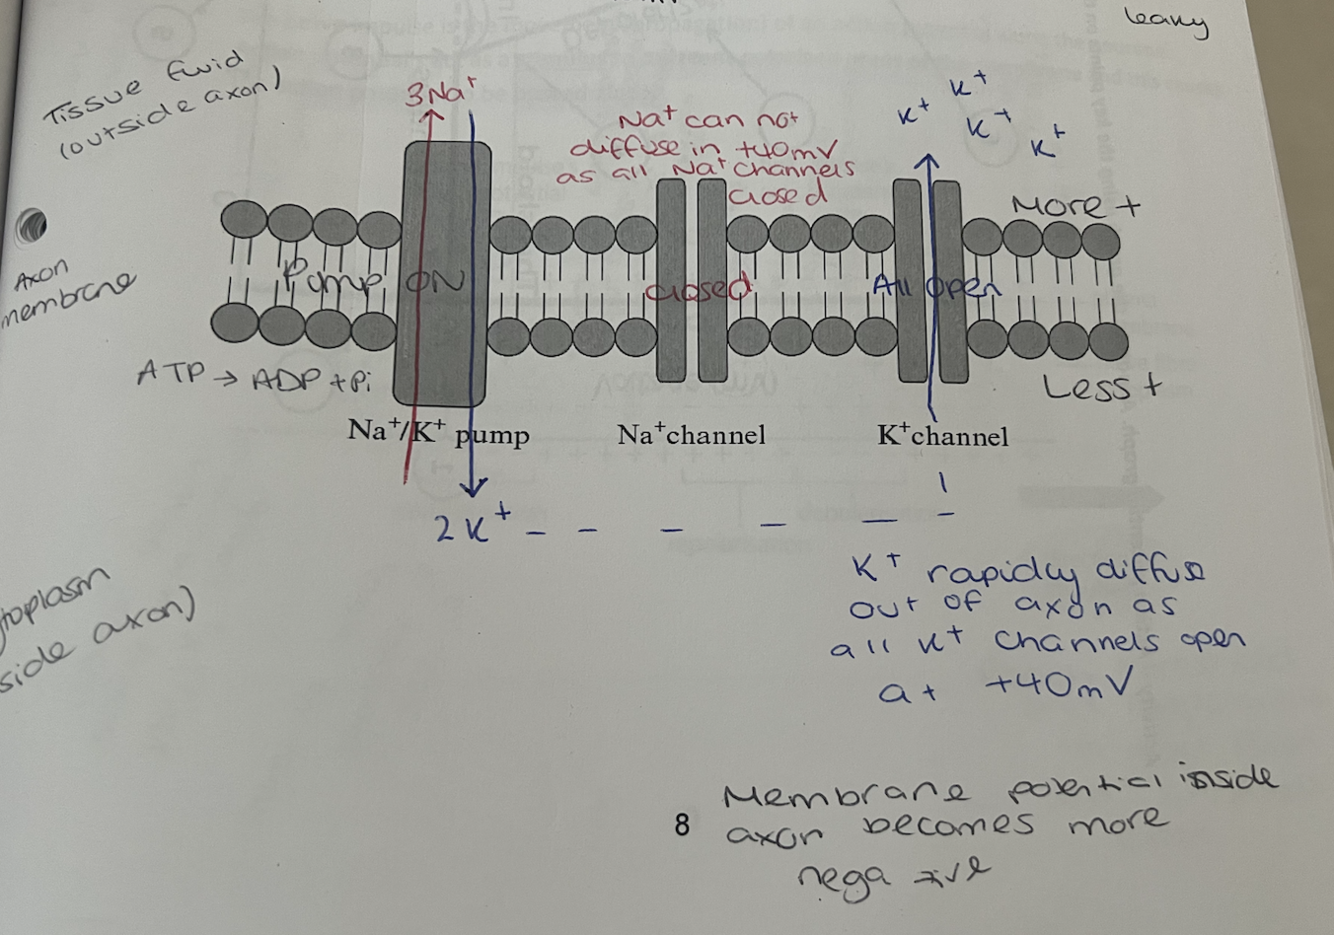 leaky
Tissue fluid
(outside axon)
3Na⁺
Na⁺ can not
diffuse in +40mV
as all Na⁺ channels
closed
K⁺
K⁺
K⁺
K⁺
More +
Axon
membrane
Pump ON
closed
All open
ATP → ADP + Pi
Less +
Na⁺/K⁺ pump
Na⁺channel
K⁺channel
2K⁺ – – – – – –
K⁺ rapidly diffuse
out of axon as
all K⁺ channels open
at +40mV
toplasm
side axon)
Membrane potential inside
8
axon becomes more
nega tive